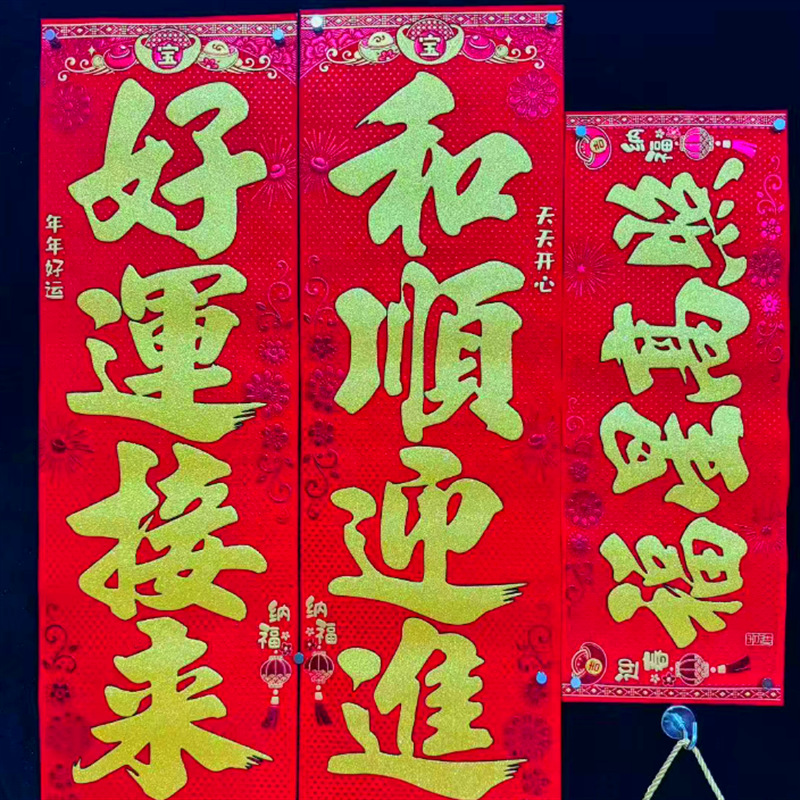 宝
和順迎進
天天开心
纳福
宝
好運接来
年年好运
纳福
迎春
福星高照
纳福